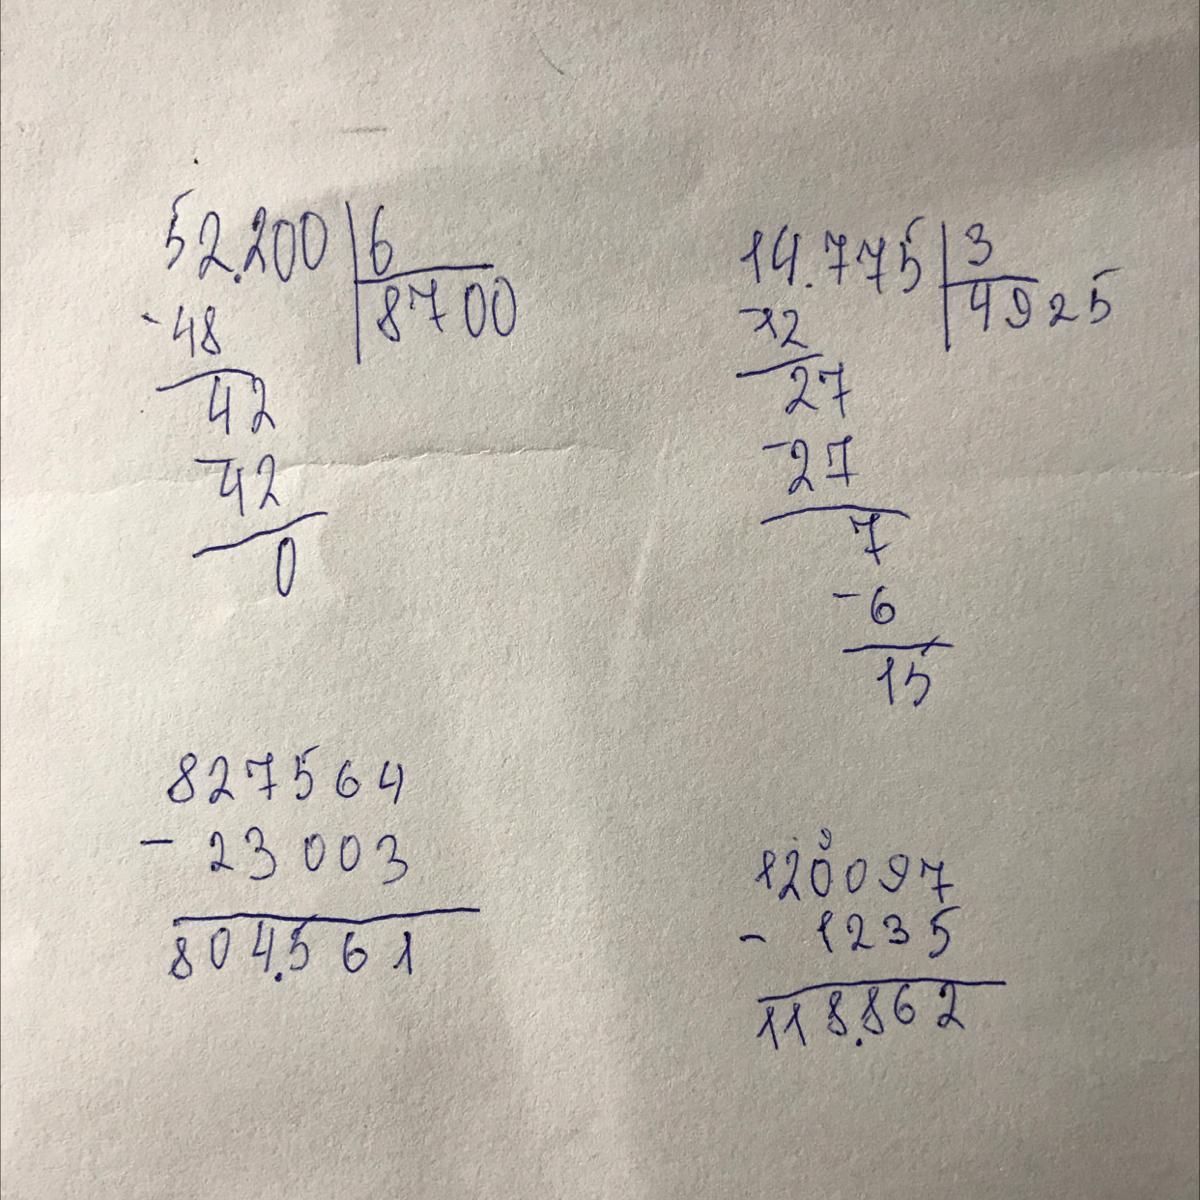 52.200 | 6
- 48 | 8700
42
- 42
0
14.775 | 3
- 12 | 4925
27
- 27
7
- 6
15
827564
- 23003
804.561
120097
- 1235
118.862